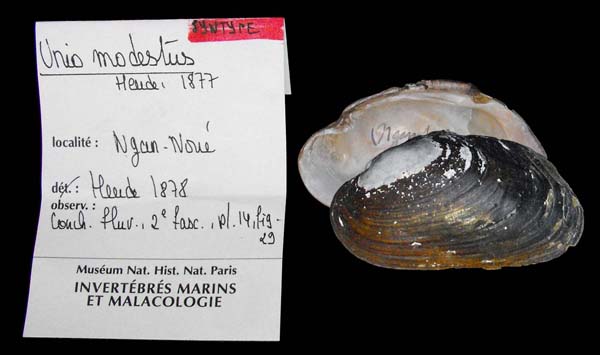 SYNTYPE
Unio modestus
Heude, 1877
localité : Ngan-Houé
dét. : Heude 1878
observ. :
Conch. fluv., 2e fasc., pl. 14, fig.
29
Muséum Nat. Hist. Nat. Paris
INVERTÉBRÉS MARINS
ET MALACOLOGIE